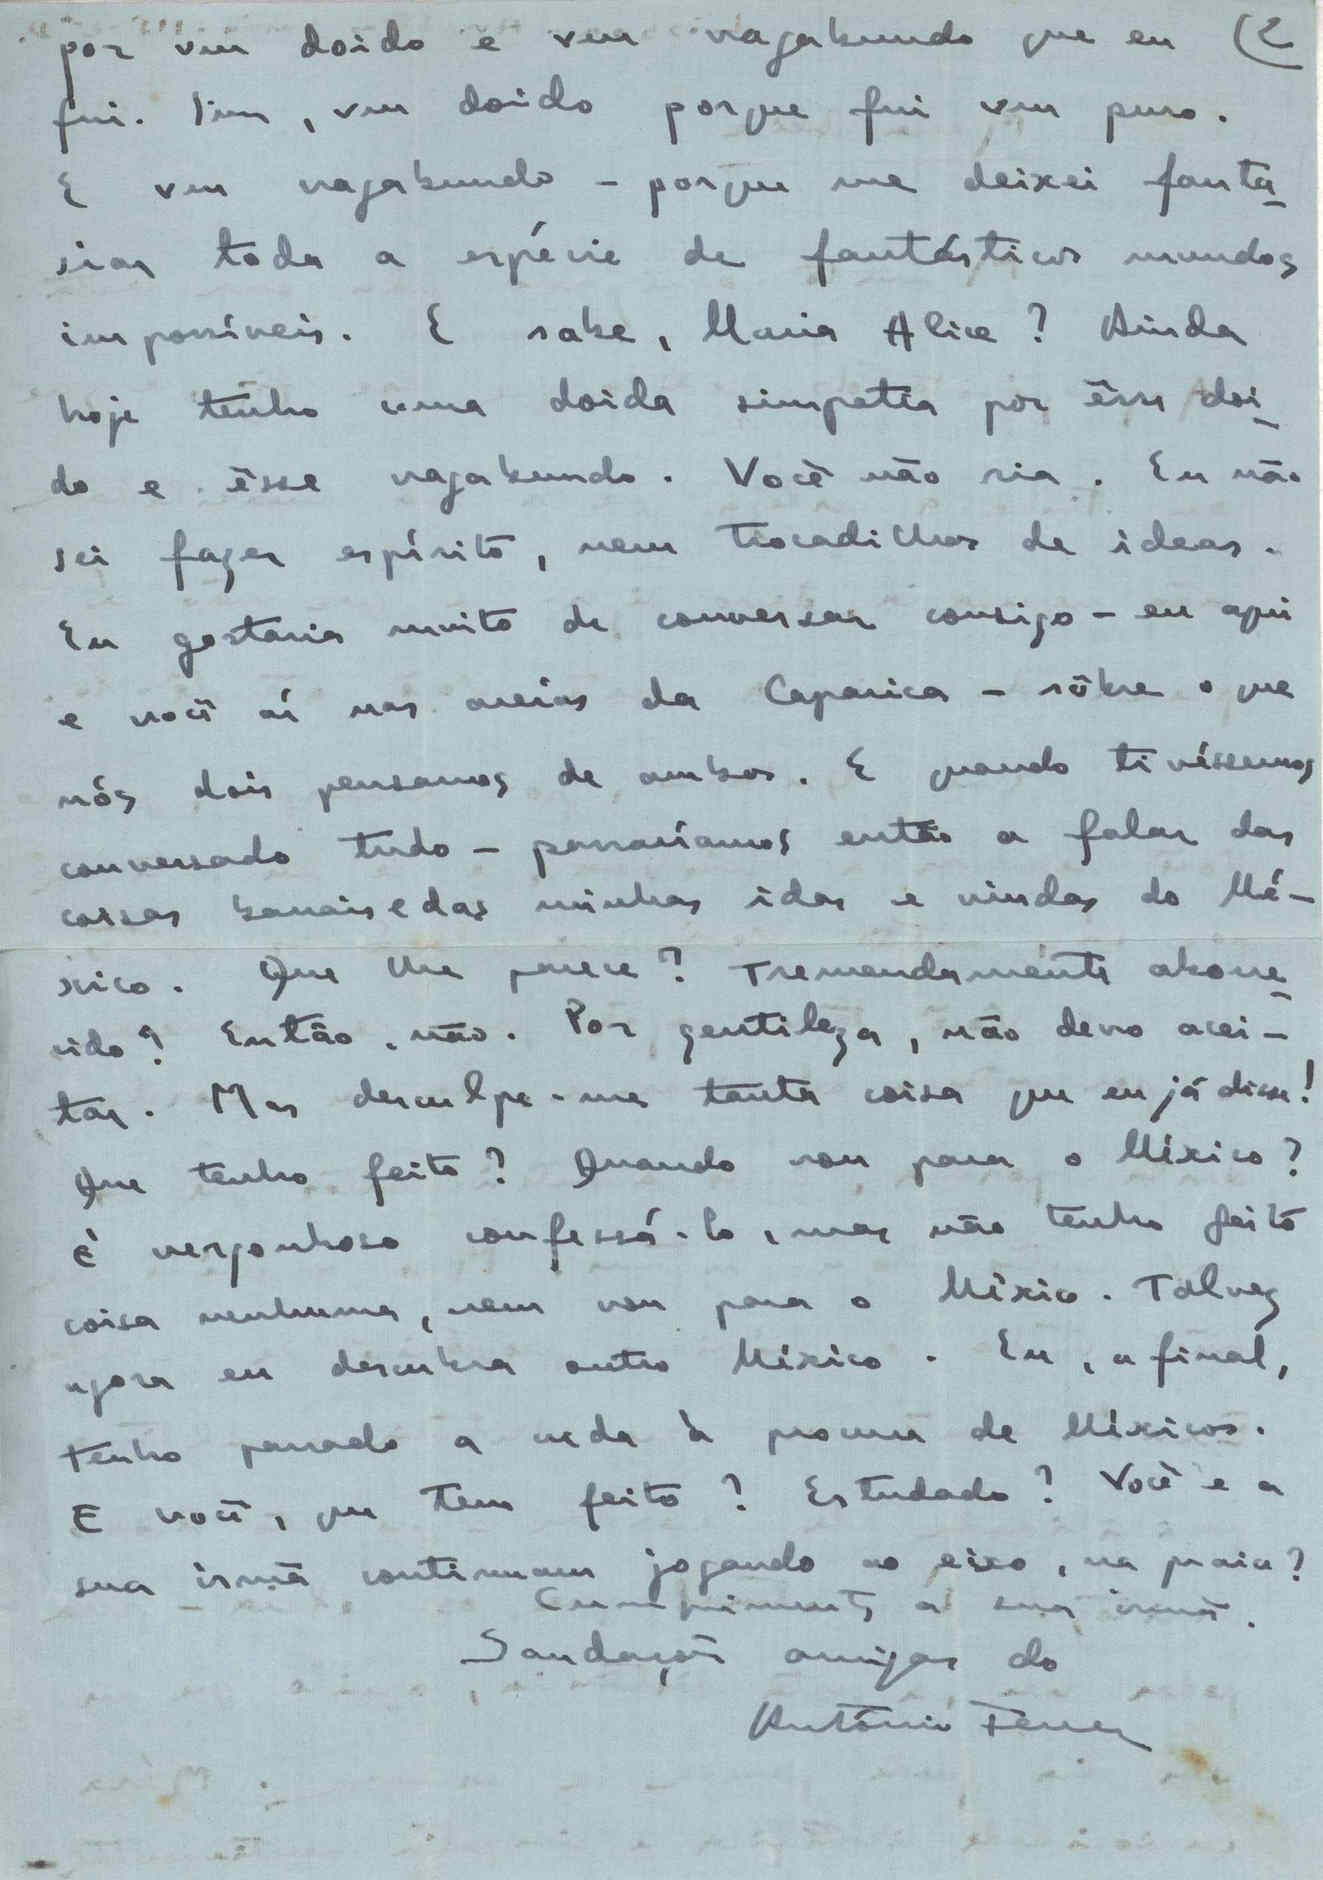 por um doido e um vagabundo que eu (2
fui. Sim, um doido porque fui um puro.
E um vagabundo – porque me deixei fanta-
siar toda a espécie de fantásticos mundos
impossíveis. E sabe, Maria Alice? Ainda
hoje tenho uma doida simpatia por êsse doi-
do e êsse vagabundo. Você não ria. Eu não
sei fazer espírito, nem trocadilhos de ideas.
Eu gostaria muito de conversar consigo – eu aqui
e você aí nas areias da Caparica – sôbre o que
nós dois pensamos de ambos. E quando tivéssemos
conversado tudo – passaríamos então a falar das
coisas banais e das minhas idas e vindas do Mé-
xico. Que lhe parece? Tremendamente aborre-
cido? Então, não. Por gentileza, não devo acei-
tar. Mas desculpe-me tanta coisa que eu já disse!
Que tenho feito? Quando vou para o México?
É vergonhoso confessá-lo, mas não tenho feito
coisa nenhuma, nem vou para o México. Talvez
agora eu descubra outro México. Eu, afinal,
tenho passado a vida à procura de Méxicos.
E você, que tem feito? Estudado? Você e a
sua irmã continuam jogando ao eixo, na praia?
Cumprimentos a sua irmã.
Saudações amigas do
António Ferro